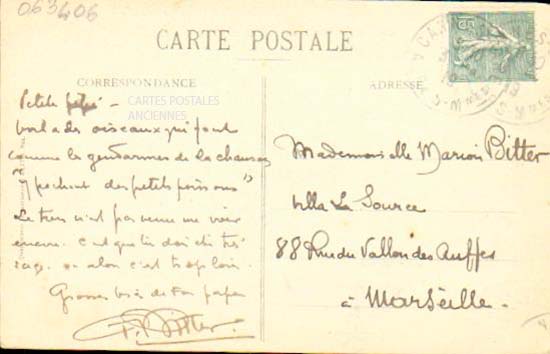 063406
CARTE POSTALE
CORRESPONDANCE
ADRESSE
CARTES POSTALES
ANCIENNES
Petite fifi -
voila des oiseaux qui font
comme les gendarmes de la chanson
"pechent des petits poissons"
Le tien n'est pas venu me voir
encore. c'est que tu dois etre tres
sage. ou alors c'est trop loin.
Grosses bises de ton papa
Bitter.
Mademoiselle Marion Bitter
Villa La Source
88 Rue du Vallon des Auffes
à Marseille.